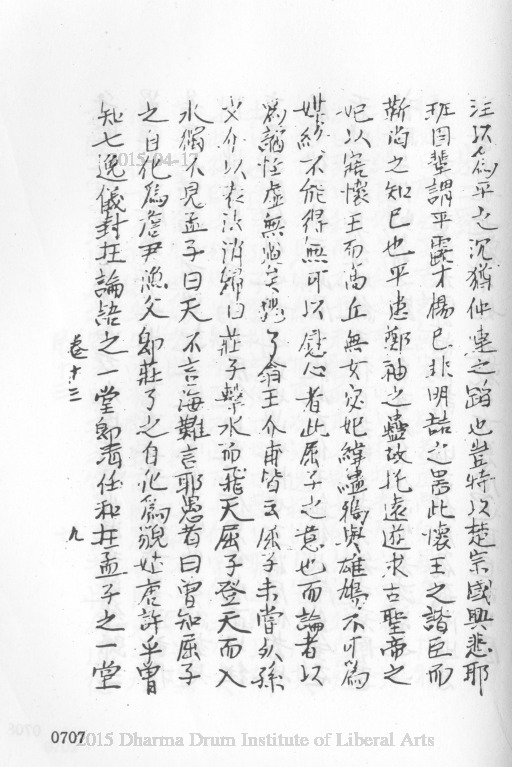 注以為平之沉猶仲連之蹈也豈特以楚宗國興悲耶
班固輩謂平露才楊己非明喆之器此懷王之諸臣而
靳尚之知已也平患鄭袖之蠱故托遠遊求古聖帝之
妃以寤懷王而高丘無女宓妃緯繣鴆與雄鳩不可為
媒終不能得無可以慰心者此屈子之意也而論者以
為譎怪虛無過矣魏了翁王介甫皆云屈子未嘗以孫
水獨不見孟子曰天不言海難言耶愚者曰曾知屈子
之自化為詹尹漁父即莊子之自化為貌姑唐許乎曾
知七逸儀封在論語之一堂即責任和在孟子之一堂
卷十三
九
0707
2015-04-17
2015 Dharma Drum Institute of Liberal Arts